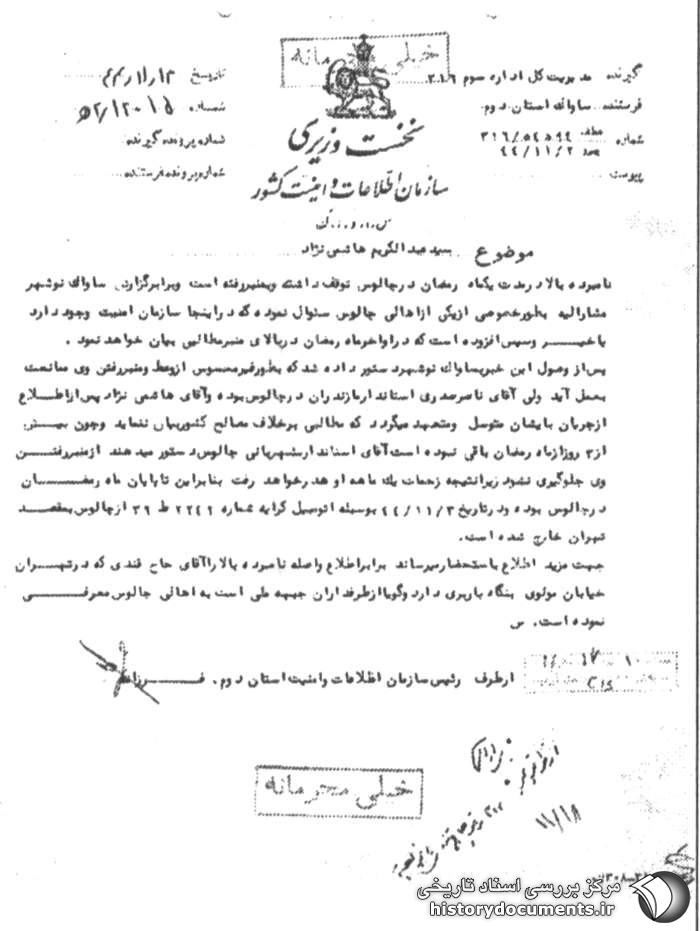 خیلی محرمانه
گیرنده مدیریت کل اداره سوم ۳۱۶
تاریخ ۴۴/۱۱/۱۳
فرستنده ساواک استان دوم
شماره ۵۲/۱۲۰۱۵
شماره عطف ۳۱۶/۵۴۵۹۴
بعد ۴۴/۱۱/۲
شماره پرونده گیرنده
پیوست
شماره پرونده فرستنده
نخست وزیری
سازمان اطلاعات و امنیت کشور
س.ا.و.ا.ک
موضوع سید عبدالکریم هاشمی نژاد
نامبرده بالا در مدت یکماه رمضان در چالوس توقف داشته و بمنبر رفته است و برابر گزارش ساواک نوشهر
مشارالیه بطور خصوصی از یکی از اهالی چالوس سئوال نموده که در اینجا سازمان امنیت وجود دارد
یا خیر و سپس افزوده است که در اواخر ماه رمضان در بالای منبر مطالبی بیان خواهد نمود.
پس از وصول این خبر بساواک نوشهر دستور داده شد که بطور غیر محسوس از وعظ و منبر رفتن وی ممانعت
بعمل آید ولی آقای ناصر صدری استاندار مازندران در چالوس بوده و آقای هاشمی نژاد پس از اطلاع
از جریان بایشان متوسل و متعهد میگردد که مطالبی برخلاف مصالح کشور بیان ننماید و چون بیش
از ۳ روز از ماه رمضان باقی نبوده است آقای استاندار بشهربانی چالوس دستور میدهند از منبر رفتن
وی جلوگیری نشود زیرا نتیجه زحمات یک ماهه او هدر خواهد رفت بنابراین تا پایان ماه رمضان
در چالوس بوده و در تاریخ ۴۴/۱۱/۳ بوسیله اتومبیل کرایه شماره ۲۲۴۲ ط ۳۹ از چالوس بمقصد
تهران خارج شده است.
جهت مزید اطلاع باستحضار میرساند برابر اطلاع واصله نامبرده بالا را آقای حاج قندی که در تهران
خیابان مولوی بنگاه باربری دارد و گویا از طرفداران جبهه ملی است به اهالی چالوس معرفی
نموده است. س
از طرف رئیس سازمان اطلاعات و امنیت استان دوم. فرزانه
خیلی محرمانه
۱۱/۱۸
مرکز بررسی اسناد تاریخی
historydocuments.ir